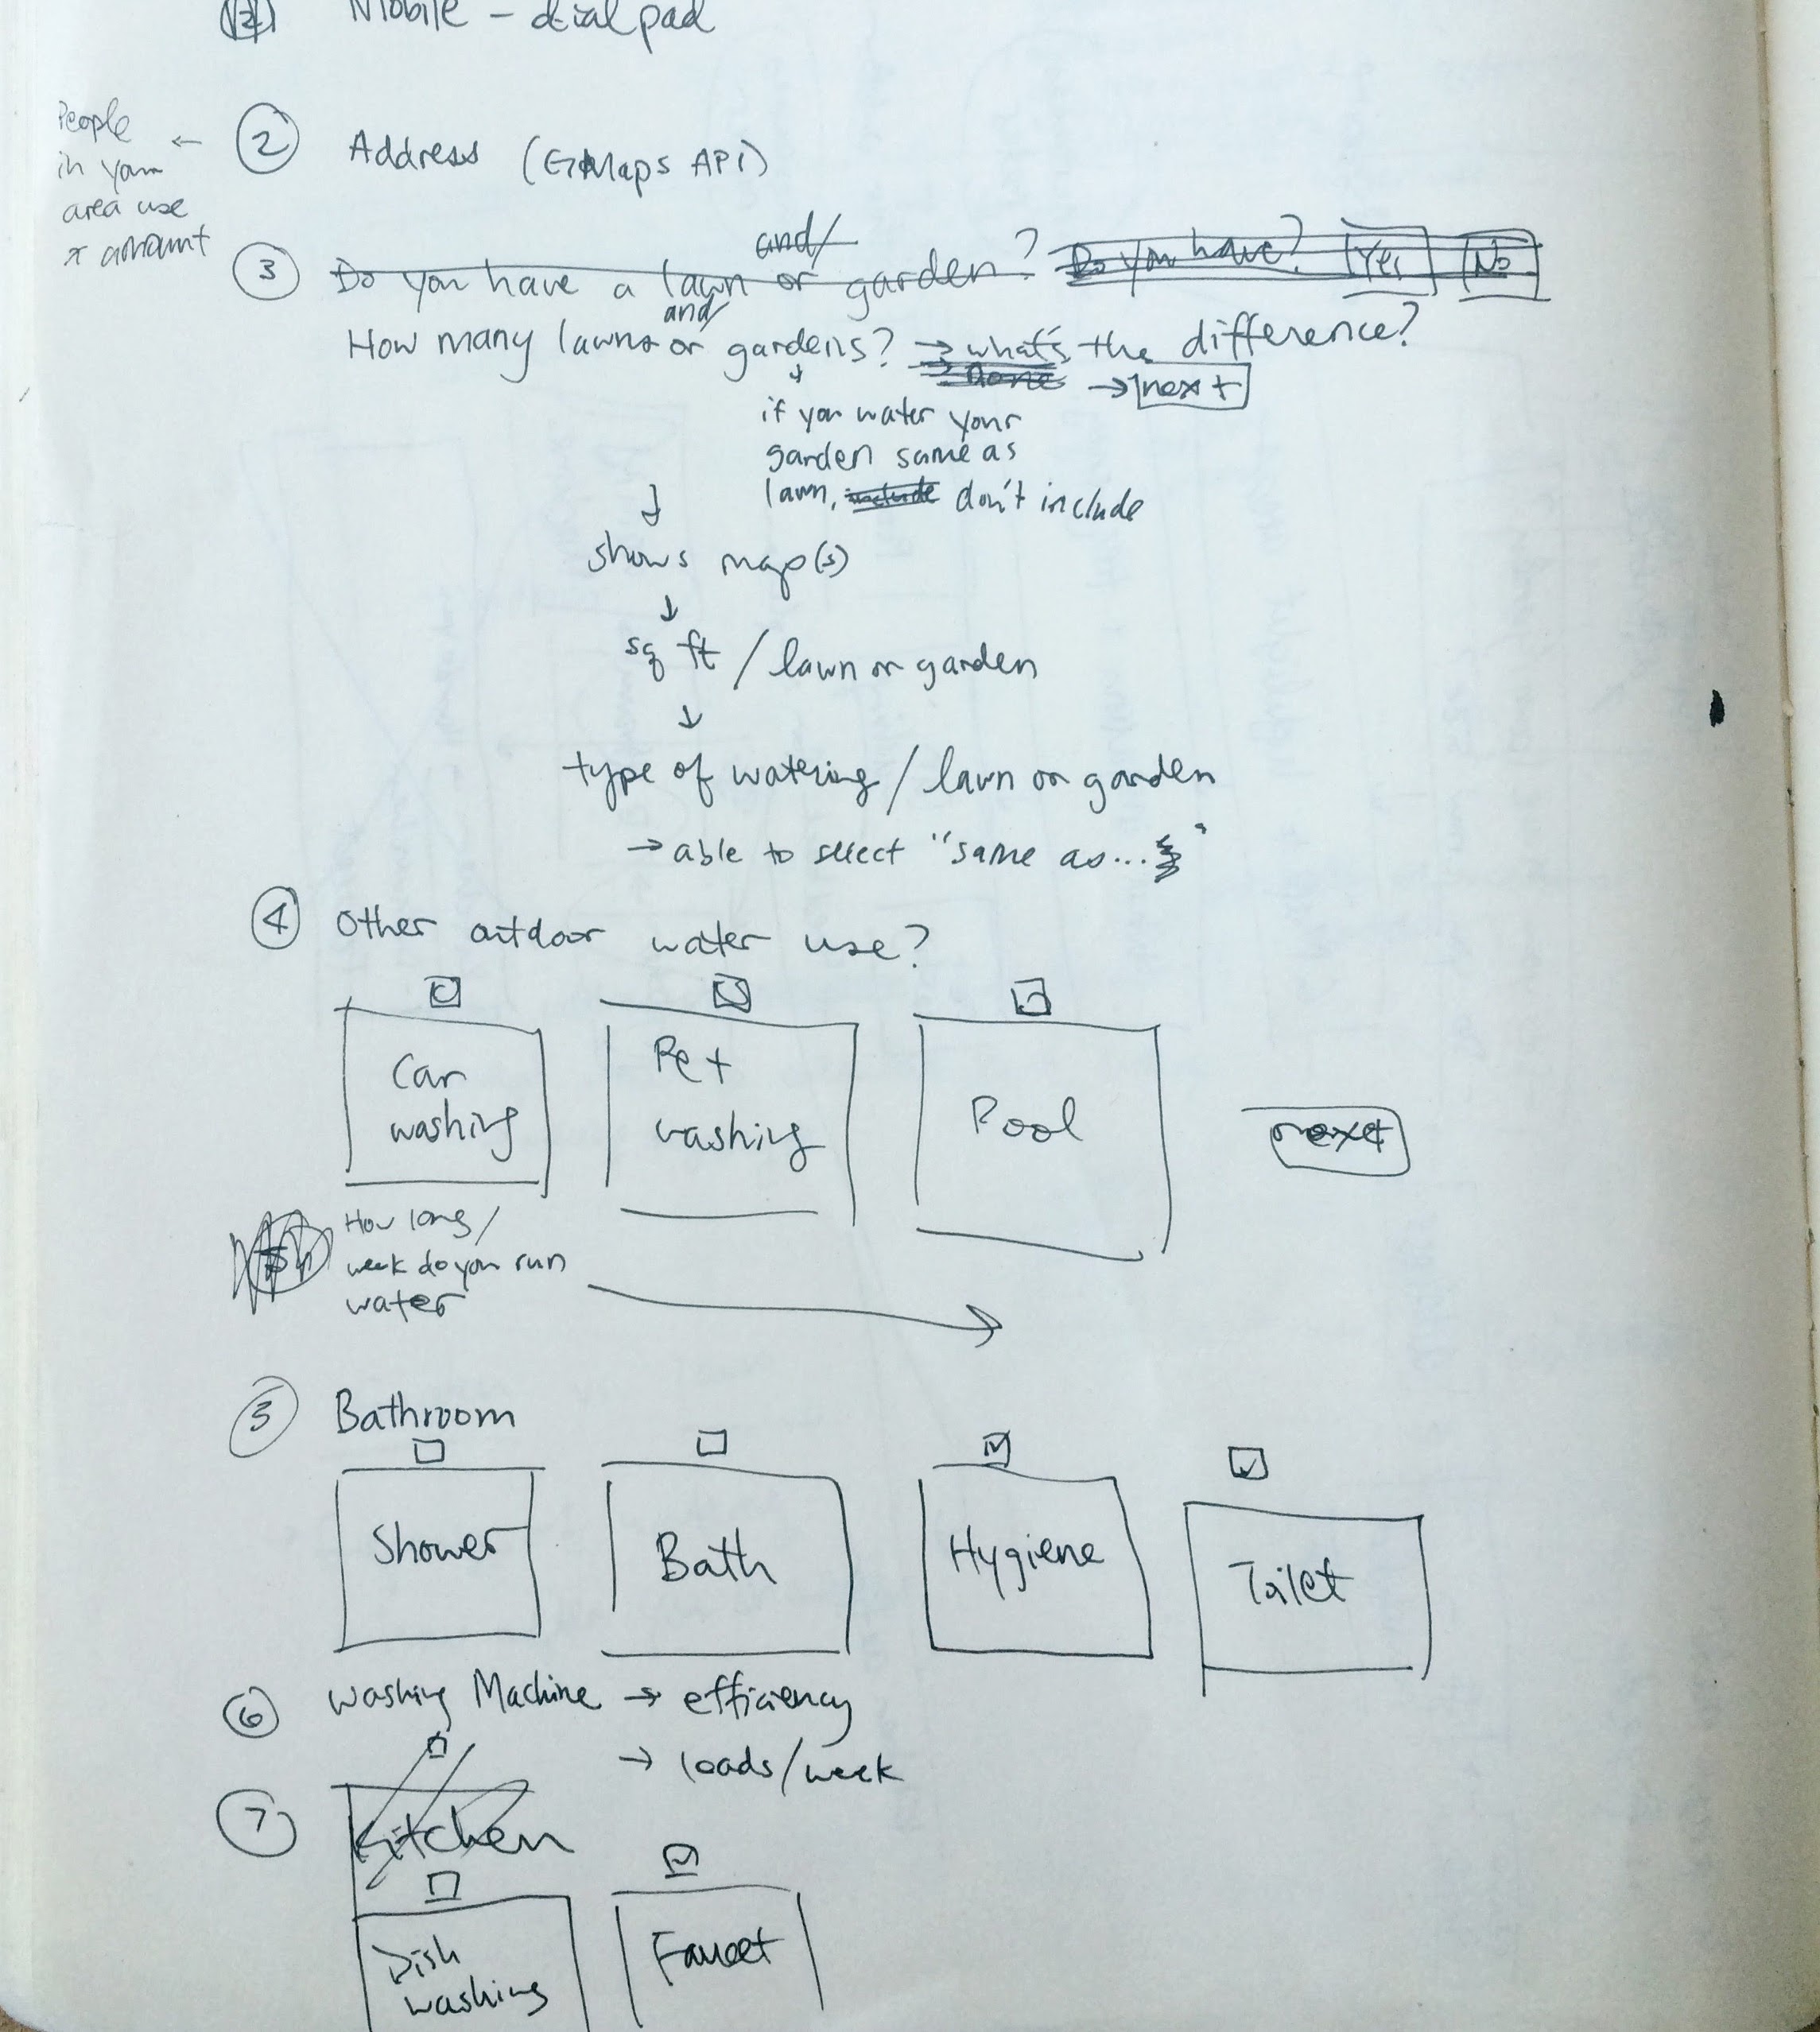 Mobile - dial pad
People
in your
area use
x amount
←
② Address (GMaps API)
and/
③ Do you have a lawn or garden? Do you have? Yes No
and/
How many lawns or gardens? → what's the difference?
→ none → next
↓
if you water your
garden same as
lawn, include don't include
↓
shows map(s)
↓
sq ft / lawn or garden
↓
type of watering / lawn or garden
→ able to select "same as... "
④ Other outdoor water use?
Car
washing
Pet
washing
Pool
next
How long/
week do you run
water
⑤ Bathroom
Shower
Bath
Hygiene
Toilet
⑥ Washing Machine → efficiency
→ loads/week
⑦ Kitchen
Dish
washing
Faucet